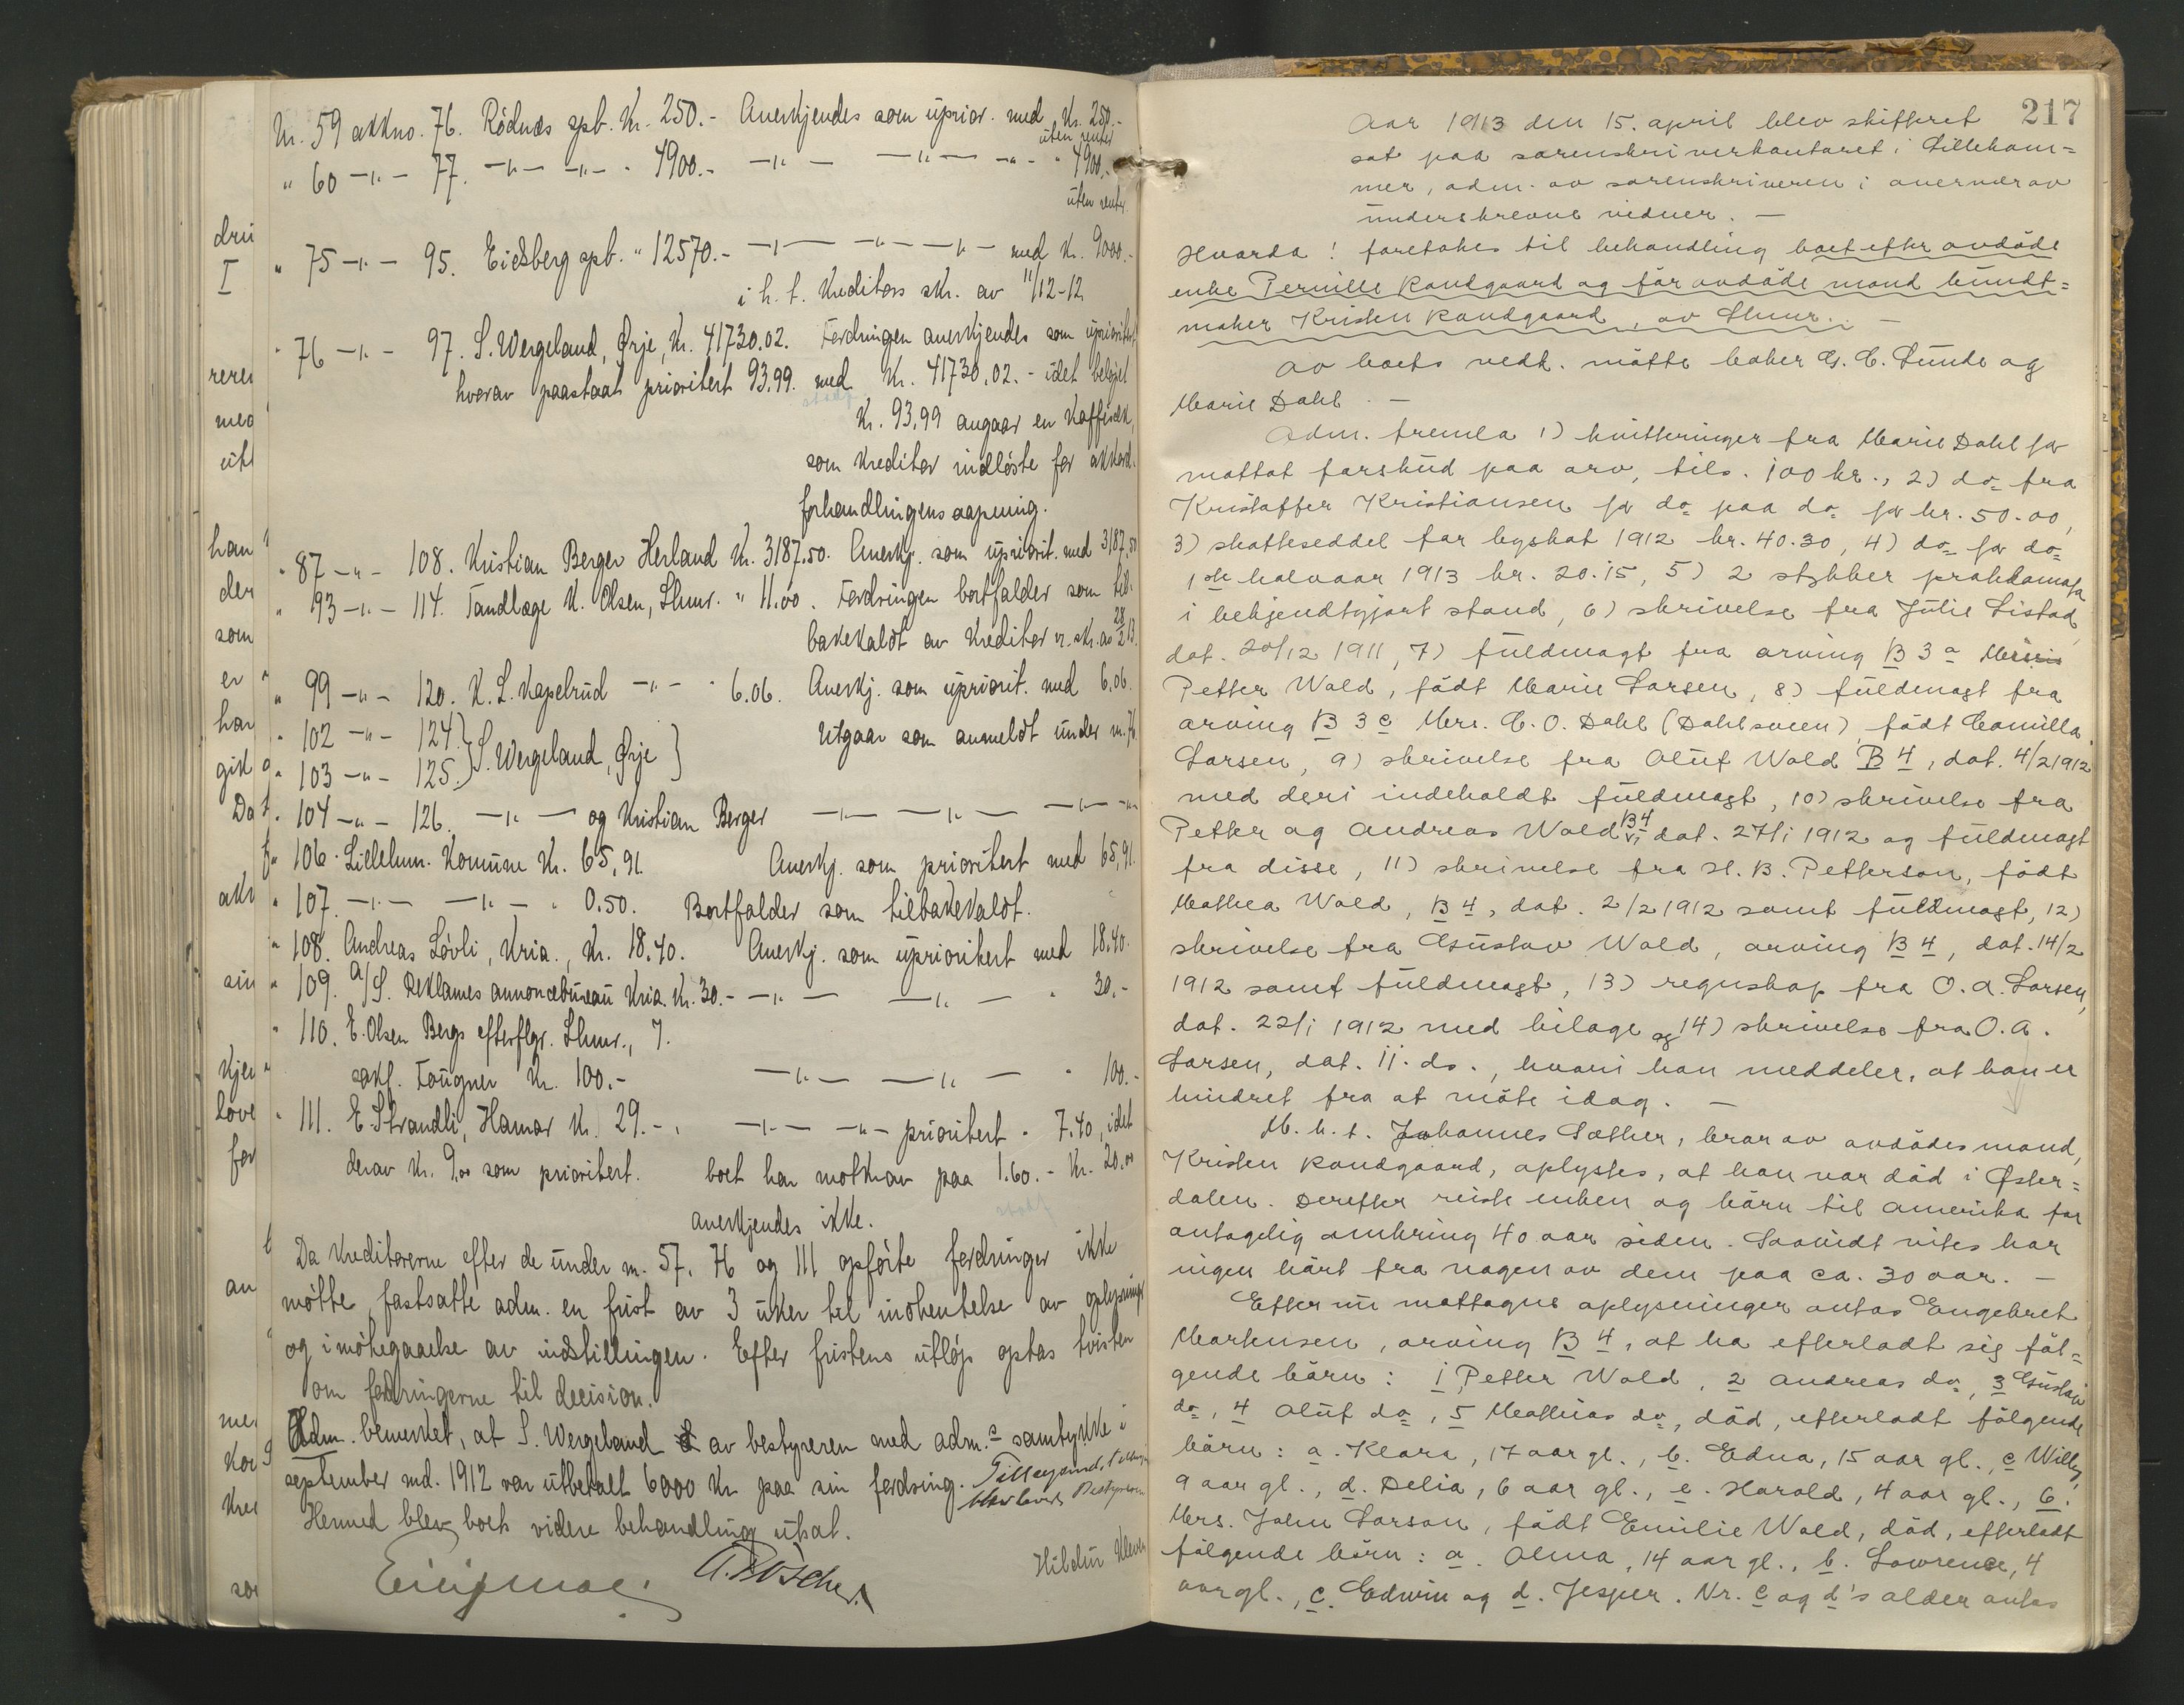 Nr. 59 akkno. 76. Rödnes spb. Kr. 250.- Anerkjendes som uprior. med Kr. 250.-
uten renter
" 60 -"- 77. -"- -"- " 4900.- -"- -"- -"- " 4900.-
uten renter
" 75 -"- 95. Eidsberg spb. " 12570.- -"- -"- -"- med Kr. 9000.-
i h. t. Kreditors skr. av 11/12-12
" 76 -"- 97. S. Wergeland, Ørje, Kr. 41730.02. Fordringen anerkjendes som uprioritert
hvorav paastaat prioritert 93.99. med Kr. 41730,02. - idet beløpet
Kr. 93,99 angaar en Kaffisæk,
som Kreditor indløste før akkord-
forhandlingens aapning.
" 87 -"- 108. Kristian Berger Herland Kr. 3187.50. Anerkj. som upriorit. med 3187,50
" 93 -"- 114. Tandlæge K. Olsen, Lhmr. " 11.00. Fordringen bortfalder som til-
bakekaldt av Kreditor v. skr. av 28/2 13.
" 99 -"- 120. K. L. Kapelrud -"- " 6.06. Anerkj. som upriorit. med 6.06.
" 102 -"- 124. } S. Wergeland, Ørje } Utgaar som anmeldt under nr. 76
" 103 -"- 125.
" 104 -"- 126. -"- og Kristian Berger -"- -"- -"- -"-
" 106. Lillehm. Komune Kr. 65,91. Anerkj. som prioritert med 65,91.
" 107. -"- -"- " 0.50. Bortfalder som tilbakekaldt.
" 108. Andreas Løvli, Kria., Kr. 18.40. Anerkj. som uprioritert med 18.40.
" 109. A/S. Reklames annoncebureau Kria. Kr. 30.- -"- -"- " 30.-
" 110. E. Olsen Bergs efterflgr. Lhmr.,
sakf. Fougner Kr. 100.- -"- -"- " 100.-
" 111. E. Strandli, Hamar Kr. 29.-. -"- -"- prioritert " 7.40, idet
derav Kr. 9.00 som prioritert. boet har motkrav paa 1.60. - Kr. 20.00
anerkjendes ikke.
Da Kreditorerne efter de under nr. 57, 76 og 111 opførte fordringer ikke
møtte, fastsatte adm. en frist av 3 uker til indhentelse av oplysninger
og imøtegaaelse av indstillingen. Efter fristens utløp optas tvisten
om fordringerne til decision.
Adm. bemerket, at S. Wergeland av bestyreren med adm.s samtykke i
september md. 1912 var utbetalt 6000 Kr. paa sin fordring.
Hermed blev boets videre behandling utsat.
217
Aar 1913 den 15. april blev skifteret
sat paa sorenskriverkontoret i Lilleham=
mer, adm. av sorenskriveren i overvær av
underskrevne vidner. -
Hvorda! foretokes til behandling boet efter avdöde
enke Pernille Randgaard og för avdöde mand bundt=
maker Kristen Randgaard, av Lhmr. -
Av boets vedk. mötte baker G. C. Lunde og
Marie Dahl. -
Adm. fremla 1) kvitteringer fra Marie Dahl for
mottat forskud paa arv, tils. 100 kr., 2) do= fra
Kristoffer Kristiansen for do= paa do= for kr. 50.00,
3) skatteseddel for byskat 1912 kr. 40.30, 4) do= for do=
1ste halvaar 1913 kr. 20.15, 5) 2 stykker proklama
i bekjendtgjort stand, 6) skrivelse fra Julie Listad,
dat. 20/12 1911, 7) fuldmagt fra arving B 3 a
Petter Wold, födt Marie Larsen, 8) fuldmagt fra
arving B 3 c Mrs. C. O. Dahl (Dahlsveen) födt Camilla
Larsen, 9) skrivelse fra Oluf Wold B 4, dat. 4/2 1912
med deri indeholdt fuldmagt, 10) skrivelse fra
Petter og Andreas Wold B 4, dat. 27/1 1912 og fuldmagt
fra disse, 11) skrivelse fra H. B. Petterson, födt
Mathea Wold, B 4, dat. 2/2 1912 samt fuldmagt, 12)
skrivelse fra Gustav Wold, arving B 4, dat. 14/2
1912 samt fuldmagt, 13) regnskap fra O. A. Larsen,
dat. 22/1 1912 med bilage og 14) skrivelse fra O. A.
Larsen, dat. 11. ds., hvori han meddeler, at han er
hindret fra at möte idag. -
M. h. t. Johannes Sæther, bror av avdödes mand,
Kristen Randgaard, oplystes, at han var död i Øster=
dalen. Derefter reiste enken og börn til Amerika for
antagelig omkring 40 aar siden. Saavidt vites har
ingen hört fra nogen av dem paa ca. 30 aar. -
Efter nu mottagne oplysninger antas Engebret
Martensen, arving B 4, at ha efterladt sig föl=
gende börn: 1 Petter Wold, 2 Andreas do=, 3 Gustav
do=, 4 Oluf do=, 5 Mathias do=, död, efterladt fölgende
börn: a. Klara, 17 aar gl., b. Edna, 15 aar gl., c Willy,
9 aar gl., d. Delia, 6 aar gl., e. Harold, 4 aar gl., 6.
Mrs. John Larson, födt Emilie Wold, död, efterladt
fölgende börn: a. Alma, 14 aar gl., b. Lawrence, 4
aar gl., c. Edwin og d. Jesper. Nr. c og d's alder antas